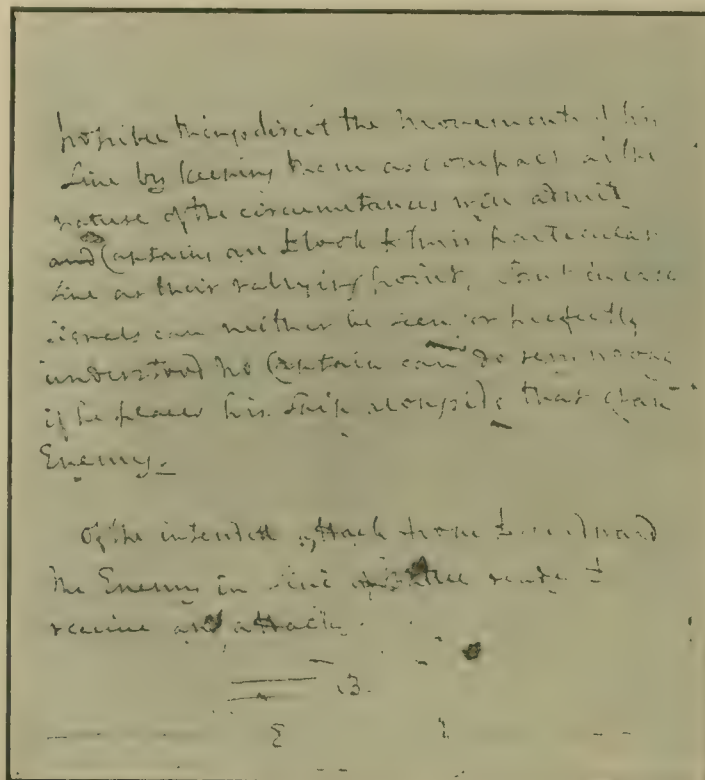 possible things direct the movements of his
Line by keeping them as compact as the
nature of the circumstances will admit
and Captains are to look to their particular
Line as their rallying point, but in case
signals can neither be seen or perfectly
understood no Captain can do very wrong
if he places his Ship alongside that of an
Enemy.
Of the intended attack from to windward
the Enemy in Line of Battle ready to
receive an attack
B
E